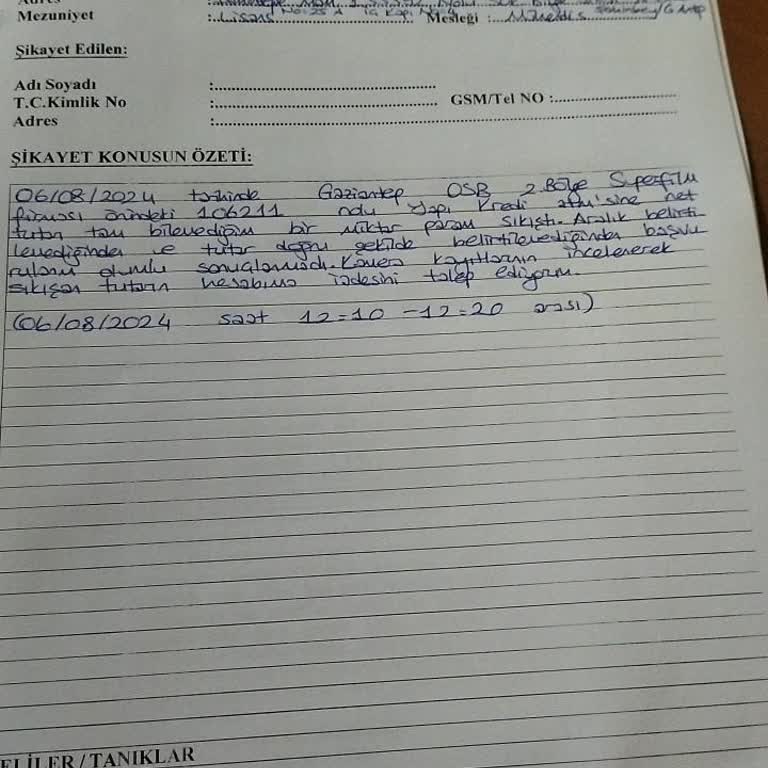 Adres
Mezuniyet :.Lisans Mesleği :..Mühendis
No:25 A İç Kapı No:4
Şikayet Edilen:
Adı Soyadı :
T.C.Kimlik No : GSM/Tel NO :
Adres :
ŞİKAYET KONUSUN ÖZETİ:
06/08/2024 tarihinde Gaziantep OSB 2.Bölge Superfilm
firması önündeki 106211 nolu Yapı Kredi atm'sine net
tutarı tam bilemediğim bir miktar param sıkıştı. Aralık belirti
lemediğinden ve tutar doğru şekilde belirtilemediğinden başvu
rularım olumlu sonuçlanmadı. Kamera kayıtlarının incelenerek
sıkışan tutarın hesabıma iadesini talep ediyorum.
(06/08/2024 saat 12:10 - 12:20 arası)
ELİLER / TANIKLAR